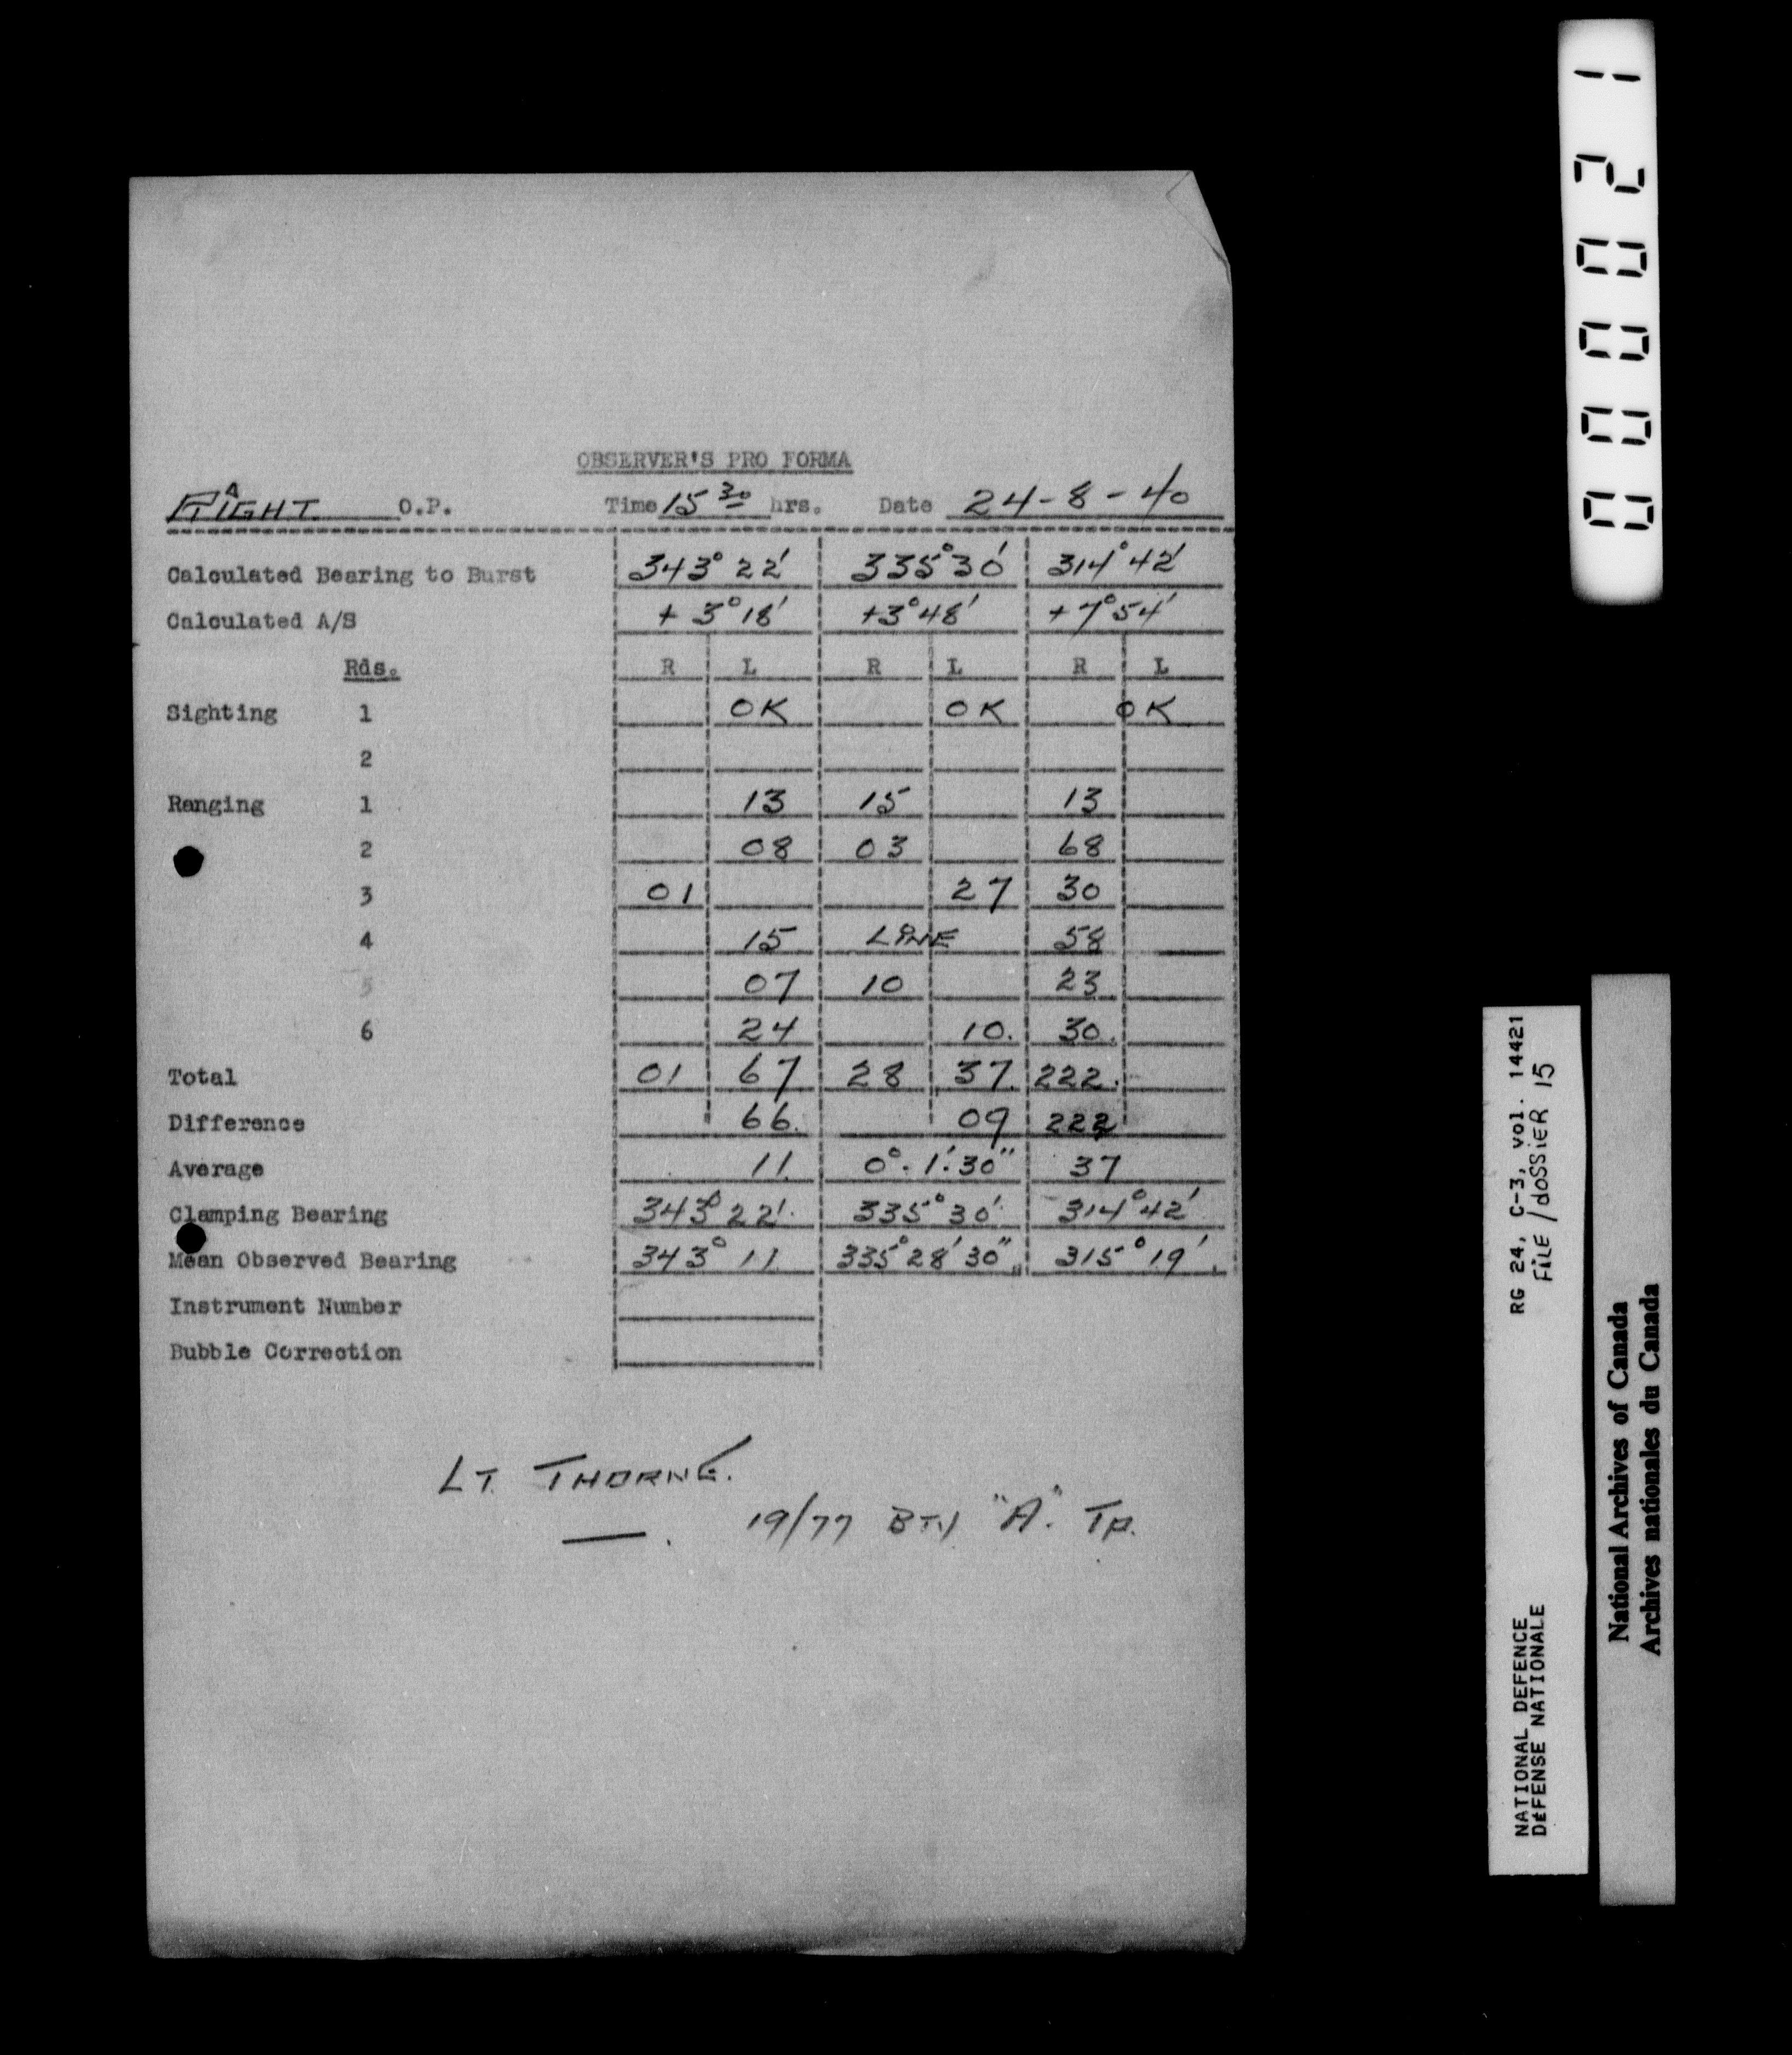 OBSERVER'S PRO FORMA
RIGHT O.P. Time 15 30 hrs. Date 24-8-40
Calculated Bearing to Burst 343° 22' 335° 30' 314° 42'
Calculated A/S + 3° 18' +3° 48' + 7° 54'
Rds. R L R L R L
Sighting 1 OK OK OK
2
Ranging 1 13 15 13
2 08 03 68
3 01 27 30
4 15 LINE 58
5 07 10 23
6 24 10. 30.
Total 01 67 28 37. 222.
Difference 66. 09 222
Average 11. 0°. 1'. 30" 37
Clamping Bearing 343° 22'. 335° 30'. 314° 42'
Mean Observed Bearing 343° 11. 335° 28' 30" 315° 19'.
Instrument Number
Bubble Correction
LT. THORNE.
19/77 BTY "A". TP.
00021
RG 24, C-3, vol. 14421
FILE / dOSSiER 15
NATIONAL DEFENCE
DéFENSE NATIONALE
National Archives of Canada
Archives nationales du Canada